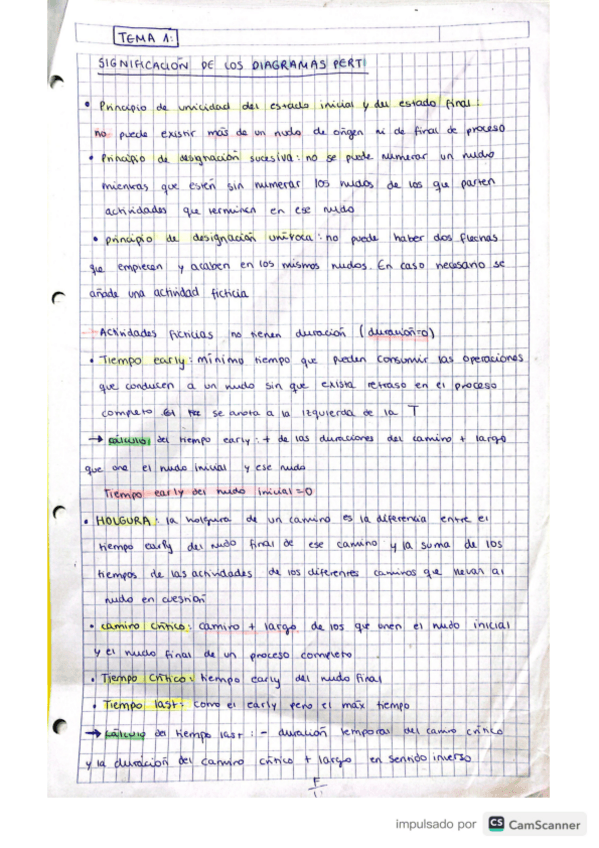 TEMA 1:
SIGNIFICACIÓN DE LOS DIAGRAMAS PERT
• Principio de unicidad del estado inicial y del estado final:
no puede existir más de un nudo de origen ni de final de proceso
• Principio de designación sucesiva: no se puede numerar un nudo
mientras que estén sin numerar los nudos de los que parten
actividades que terminen en ese nudo
• principio de designación unívoca: no puede haber dos flechas
que empiecen y acaben en los mismos nudos. En caso necesario se
añade una actividad ficticia
Actividades ficticias no tienen duración (duración=0)
• Tiempo early: mínimo tiempo que pueden consumir las operaciones
que conducen a un nudo sin que exista retraso en el proceso
completo. El se anota a la izquierda de la T
→ cálculo del tiempo early: + de las duraciones del camino + largo
que une el nudo inicial y ese nudo
Tiempo early del nudo inicial=0
• HOLGURA: la holgura de un camino es la diferencia entre el
tiempo early del nudo final de ese camino y la suma de los
tiempos de las actividades de los diferentes caminos que llevan al
nudo en cuestión
• camino crítico: camino + largo de los que unen el nudo inicial
y el nudo final de un proceso completo
• Tiempo crítico: tiempo early del nudo final
• Tiempo last: como el early pero el máx tiempo
→ cálculo del tiempo last: - duración temporal del camino crítico
y la duración del camino crítico + largo en sentido inverso
impulsado por CS CamScanner